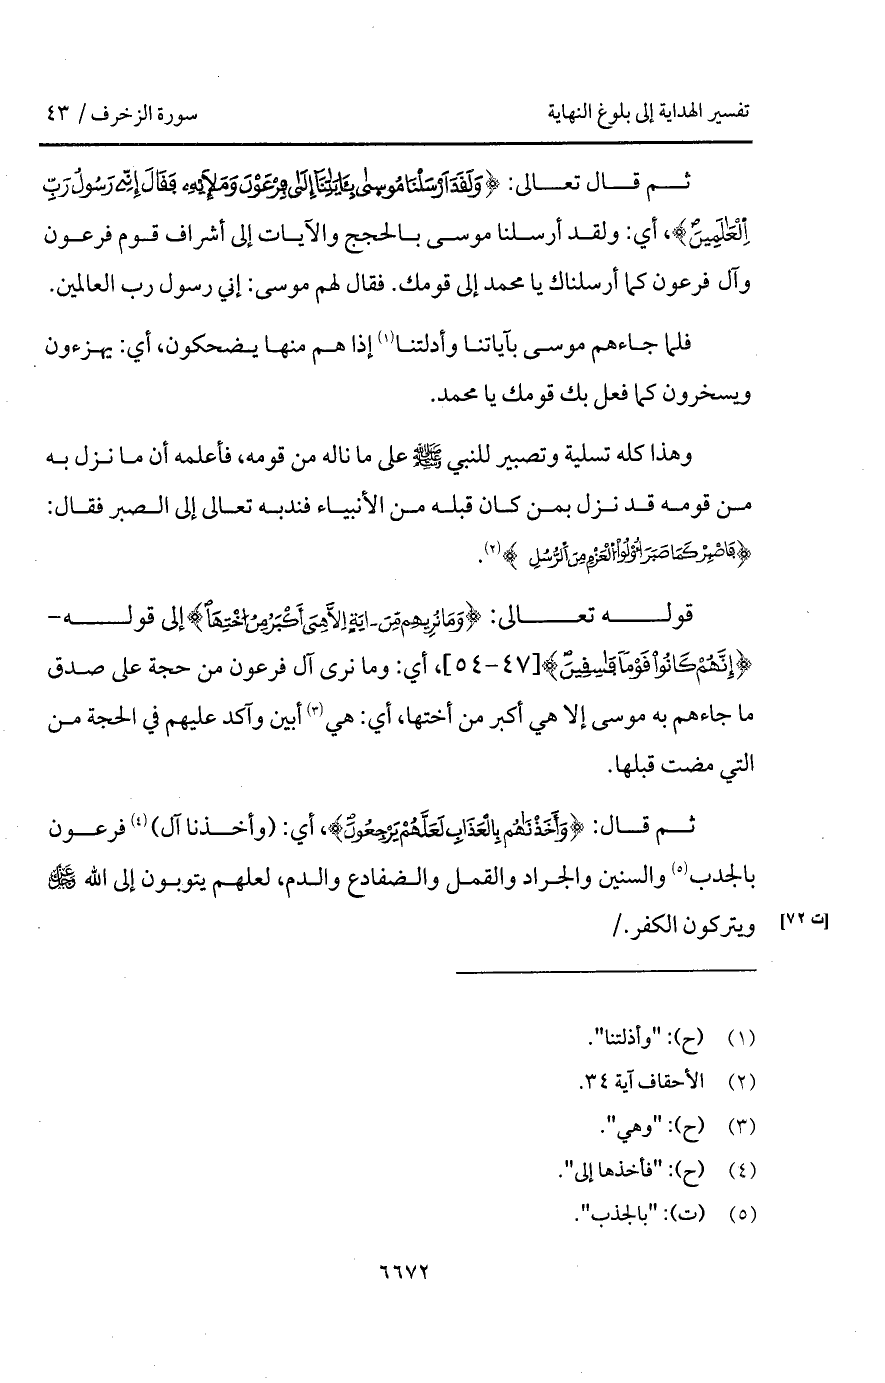 تفسير الهداية إلى بلوغ النهاية
سورة الزخرف / ٤٣
ثم قال تعالى: ﴿وَلَقَدَ اَرْسَلْنَا مُوسِىٰ بِـَٔايَٰتِنَآ إِلَىٰ فِرْعَوْنَ وَمَلإِيْهِۦ فَقَالَ إِنِّے رَسُولُ رَبِّ
اِ۬لْعَٰلَمِينَۖ﴾، أي: ولقد أرسلنا موسى بالحجج والآيات إلى أشراف قوم فرعون
وآل فرعون كما أرسلناك يا محمد إلى قومك. فقال لهم موسى: إني رسول رب العالمين.
فلما جاءهم موسى بآياتنا وأدلتنا(١) إذا هم منها يضحكون، أي: يهزءون
ويسخرون كما فعل بك قومك يا محمد.
وهذا كله تسلية وتصبير للنبي ﷺ على ما ناله من قومه، فأعلمه أن ما نزل به
من قومه قد نزل بمن كان قبله من الأنبياء فندبه تعالى إلى الصبر فقال:
﴿فَاصْبِرْ كَمَا صَبَرَ أُوْلُواْ اُ۬لْعَزْمِ مِنَ اَ۬لرُّسُلِ﴾(٢).
قوله تعالى: ﴿وَمَا نُرِيهِم مِّنَ ـ ايَةٍ اِلَّا هِيَ أَكْبَرُ مِنُ اخْتِهَاۖ﴾ إلى قوله-
﴿إِنَّهُمْ كَانُواْ قَوْماٗ فَٰسِقِينَۖ﴾[٤٧-٥٤]، أي: وما نرى آل فرعون من حجة على صدق
ما جاءهم به موسى إلا هي أكبر من أختها، أي: هي(٣) أبين وآكد عليهم في الحجة من
التي مضت قبلها.
ثم قال: ﴿وَأَخَذْنَٰهُم بِالْعَذَابِ لَعَلَّهُمْ يَرْجِعُونَۖ﴾، أي: (وأخذنا آل)(٤) فرعون
بالجدب(٥) والسنين والجراد والقمل والضفادع والدم، لعلهم يتوبون إلى الله ﷿
ويتركون الكفر./
[ت ٧٢]
(١) (ح): "وأذلتنا".
(٢) الأحقاف آية ٣٤.
(٣) (ح): "وهي".
(٤) (ح): "فأخذها إلى".
(٥) (ت): "بالجذب".
٦٦٧٢